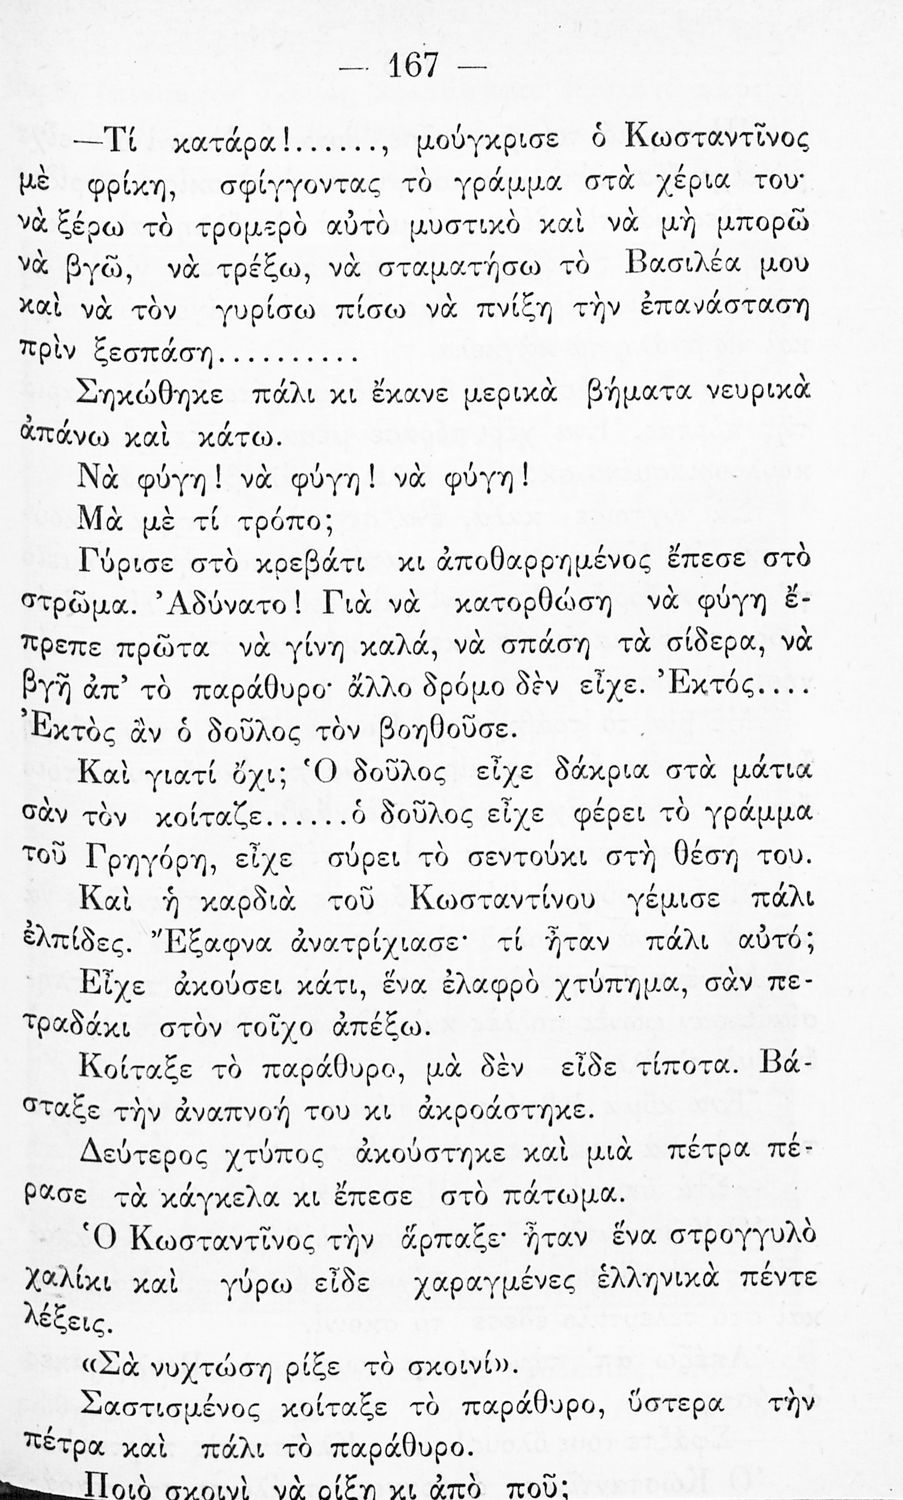 — 167 —
—Τί κατάρα!......, μούγκρισε ὁ Κωσταντῖνος
μὲ φρίκη, σφίγγοντας τὸ γράμμα στὰ χέρια του·
νὰ ξέρω τὸ τρομερὸ αὐτὸ μυστικὸ καὶ νὰ μὴ μπορῶ
νὰ βγῶ, νὰ τρέξω, νὰ σταματήσω τὸ Βασιλέα μου
καὶ νὰ τὸν γυρίσω πίσω νὰ πνίξη τὴν ἐπανάσταση
πρὶν ξεσπάση..........
Σηκώθηκε πάλι κι ἔκανε μερικὰ βήματα νευρικὰ
ἀπάνω καὶ κάτω.
Νὰ φύγη! νὰ φύγη! νὰ φύγη!
Μὰ μὲ τί τρόπο;
Γύρισε στὸ κρεβάτι κι ἀποθαρρημένος ἔπεσε στὸ
στρῶμα. Ἀδύνατο! Γιὰ νὰ κατορθώση νὰ φύγη ἔ-
πρεπε πρῶτα νὰ γίνη καλά, νὰ σπάση τὰ σίδερα, νὰ
βγῆ ἀπ’ τὸ παράθυρο· ἄλλο δρόμο δὲν εἶχε. Ἐκτός....
Ἐκτὸς ἂν ὁ δοῦλος τὸν βοηθοῦσε.
Καὶ γιατί ὄχι; Ὁ δοῦλος εἶχε δάκρια στὰ μάτια
σὰν τὸν κοίταζε......ὁ δοῦλος εἶχε φέρει τὸ γράμμα
τοῦ Γρηγόρη, εἶχε σύρει τὸ σεντούκι στὴ θέση του.
Καὶ ἡ καρδιὰ τοῦ Κωσταντίνου γέμισε πάλι
ἐλπίδες. Ἔξαφνα ἀνατρίχιασε· τί ἦταν πάλι αὐτό;
Εἶχε ἀκούσει κάτι, ἕνα ἐλαφρὸ χτύπημα, σὰν πε-
τραδάκι στὸν τοῖχο ἀπέξω.
Κοίταξε τὸ παράθυρο, μὰ δὲν εἶδε τίποτα. Βά-
σταξε τὴν ἀναπνοή του κι ἀκροάστηκε.
Δεύτερος χτύπος ἀκούστηκε καὶ μιὰ πέτρα πέ-
ρασε τὰ κάγκελα κι ἔπεσε στὸ πάτωμα.
Ὁ Κωσταντῖνος τὴν ἅρπαξε· ἦταν ἕνα στρογγυλὸ
χαλίκι καὶ γύρω εἶδε χαραγμένες ἑλληνικὰ πέντε
λέξεις.
«Σὰ νυχτώση ρίξε τὸ σκοινί».
Σαστισμένος κοίταξε τὸ παράθυρο, ὕστερα τὴν
πέτρα καὶ πάλι τὸ παράθυρο.
Ποιὸ σκοινὶ νὰ ρίξη κι ἀπὸ ποῦ;